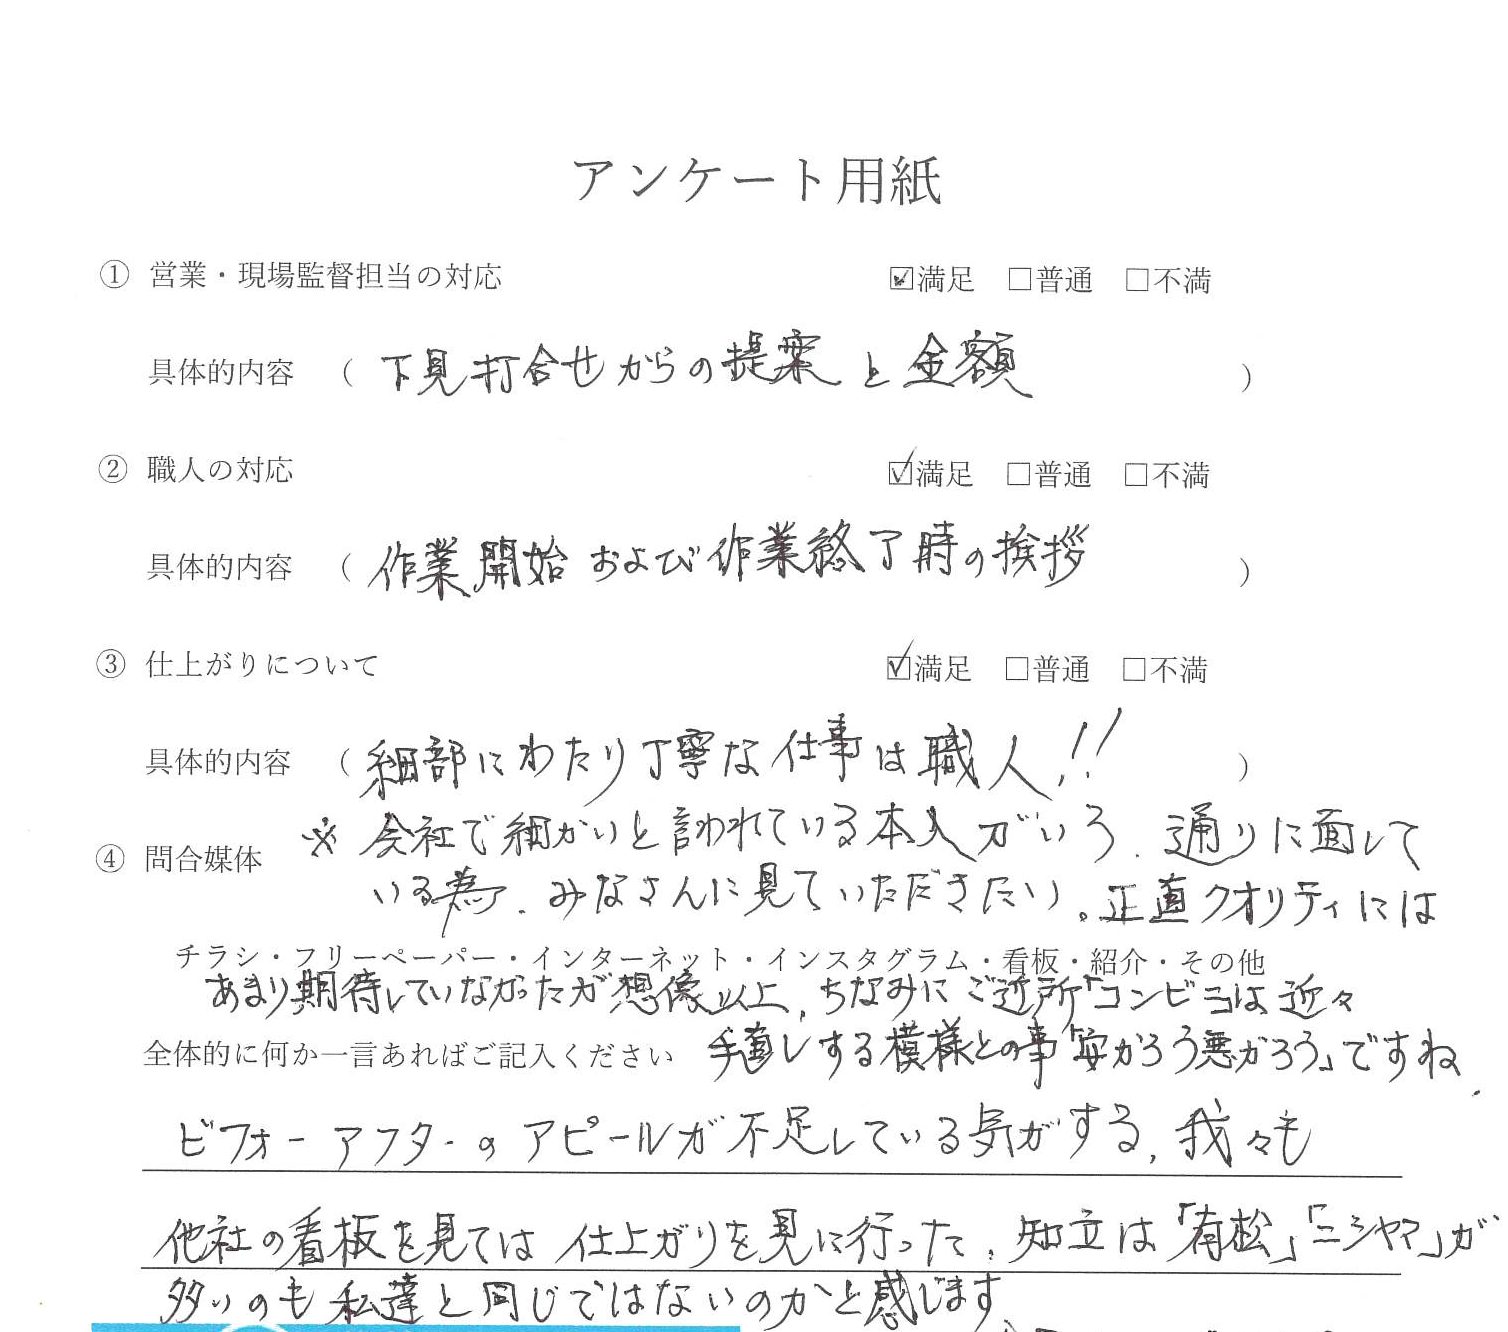 アンケート用紙
① 営業・現場監督担当の対応 ☑満足 □普通 □不満
具体的内容 （ 下見打合せからの提案と金額 ）
② 職人の対応 ☑満足 □普通 □不満
具体的内容 （ 作業開始および作業終了時の挨拶 ）
③ 仕上がりについて ☑満足 □普通 □不満
具体的内容 （ 細部にわたり丁寧な仕事は職人!! ）
※ 会社で細かいと言われている本人がいう、通りに面して
④ 問合媒体
いる為、みなさんに見ていただきたい。正直クオリティには
チラシ・フリーペーパー・インターネット・インスタグラム・看板・紹介・その他
あまり期待していなかったが想像以上、ちなみにご近所「コンビニ」は近々
全体的に何か一言あればご記入ください
手直しする模様との事「安かろう悪かろう」ですね、
ビフォーアフターのアピールが不足している気がする、我々も
他社の看板を見ては仕上がりを見に行った、知立は「有松」「ニシヤマ」が
多いのも私達と同じではないのかと感じます